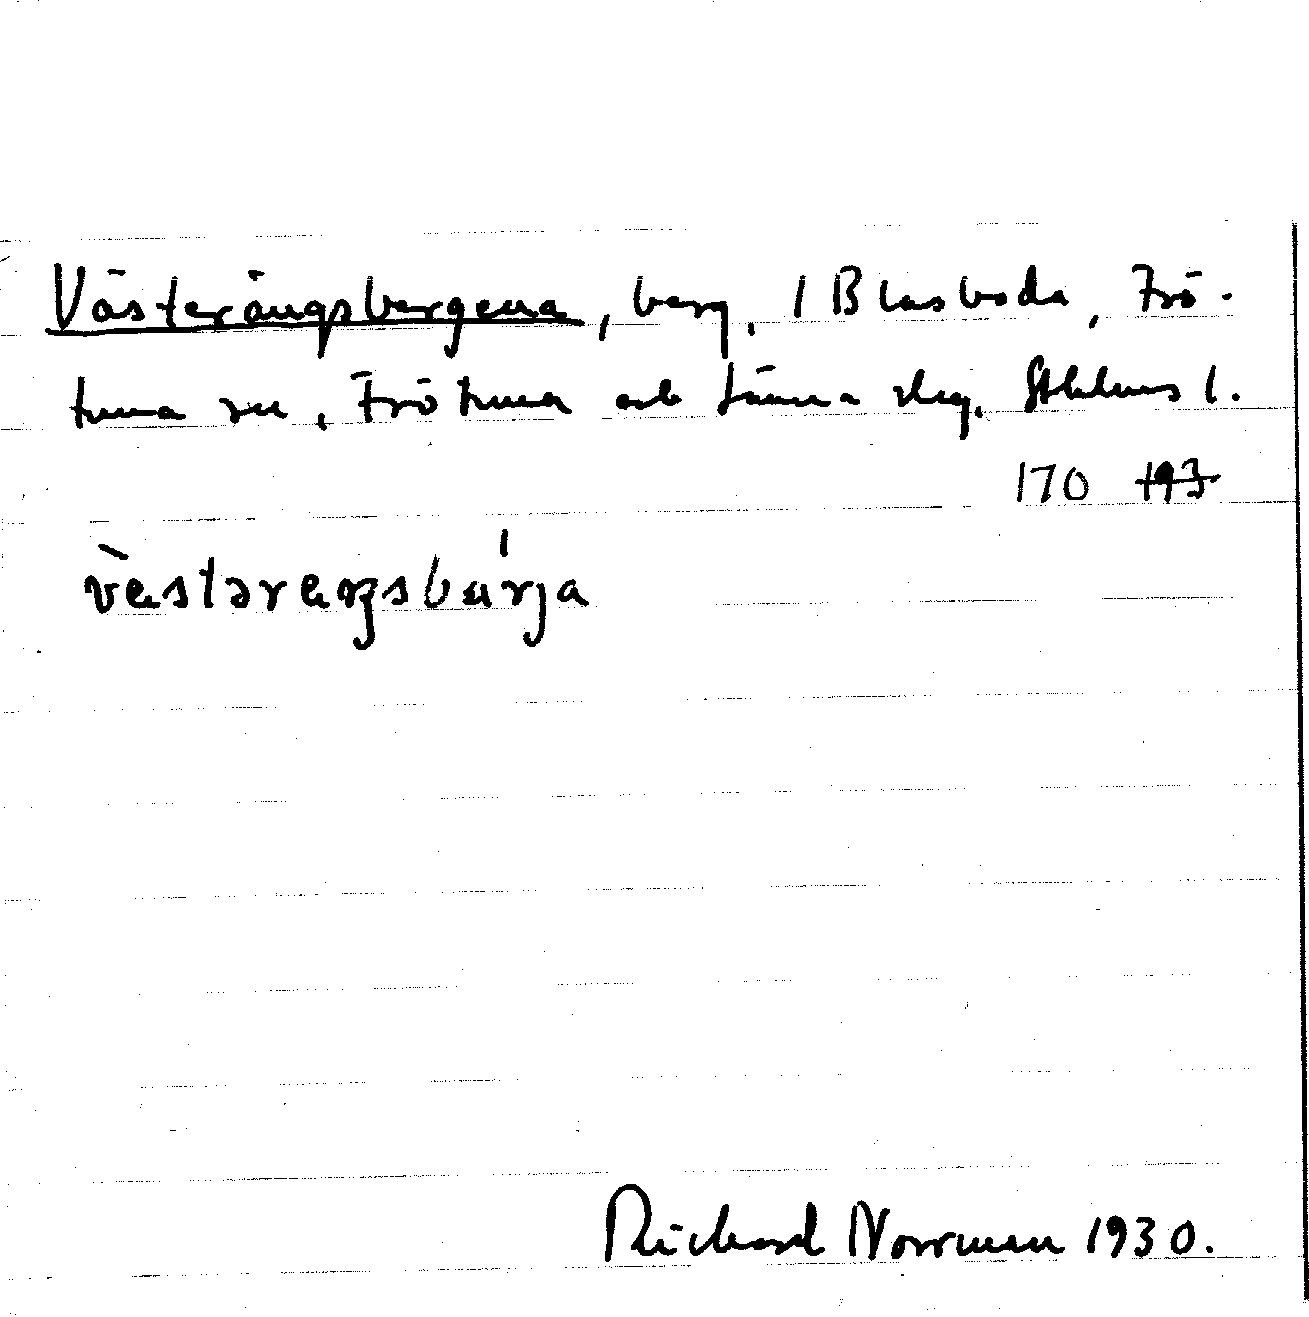 Västerängsbergena, berg, 1 Blasboda, Frö-
tuna sn, Frötuna och Länna skg. Sthlms l.
170 193
v̀ästəräŋsbä́rja
Richard Norrman 1930.